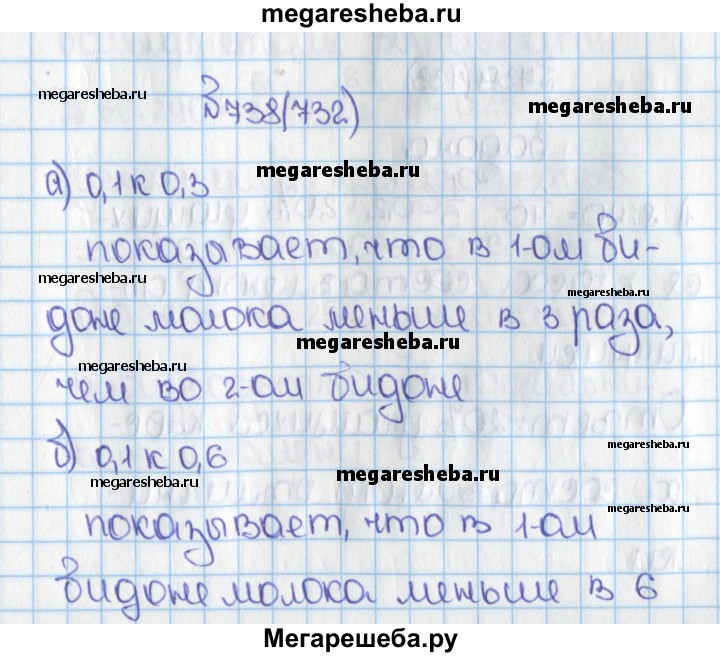 megaresheba.ru
№738(732)
megaresheba.ru
megaresheba.ru
megaresheba.ru
а) 0,1 к 0,3
показывает, что в 1-ом би-
megaresheba.ru
megaresheba.ru
доне молока меньше в 3 раза,
megaresheba.ru
megaresheba.ru
чем во 2-ом бидоне
б) 0,1 к 0,6
megaresheba.ru
megaresheba.ru
megaresheba.ru
megaresheba.ru
показывает, что в 1-ом
бидоне молока меньше в 6
Мегарешеба.ру